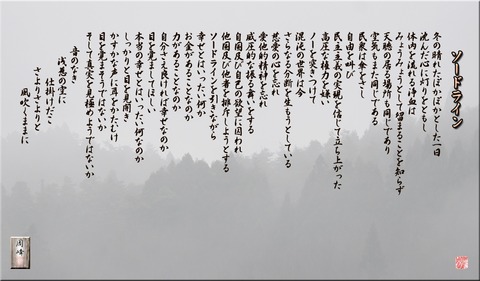 ソードライン
冬の晴れたぽかぽかとした一日
沈んだ心に灯りをともし
体内を流れる浄血は
みょうみょうとして留まることを知らず
天聴の居る場所も同じであり
空気もまた同じである
民衆は傘をさし
自由を叫び
民主主義の実現を信じて立ち上がった
高圧な権力を嫌い
ノーを突きつけて
混沌の世界は今
さらなる分断を生もうとしている
慈愛の心を忘れ
愛他的精神を忘れ
威圧的な振る舞いをする
自国及び自己の欲望に囚われ
他国及び他者を排斥しようとする
ソードラインを引きながら
幸せとはいったい何か
お金があることなのか
力があることなのか
自分さえ良ければ幸せなのか
目を覚ましてほしい
本当の幸せとはいったい何なのか
目を覚まそうではないか
しっかりと目を見開き
かすかな声に耳をかたむけ
そして真実を見極めようではないか
音のなき
浅葱の空に
仕掛けだこ
さよりさよりと
風吹くままに
周峰